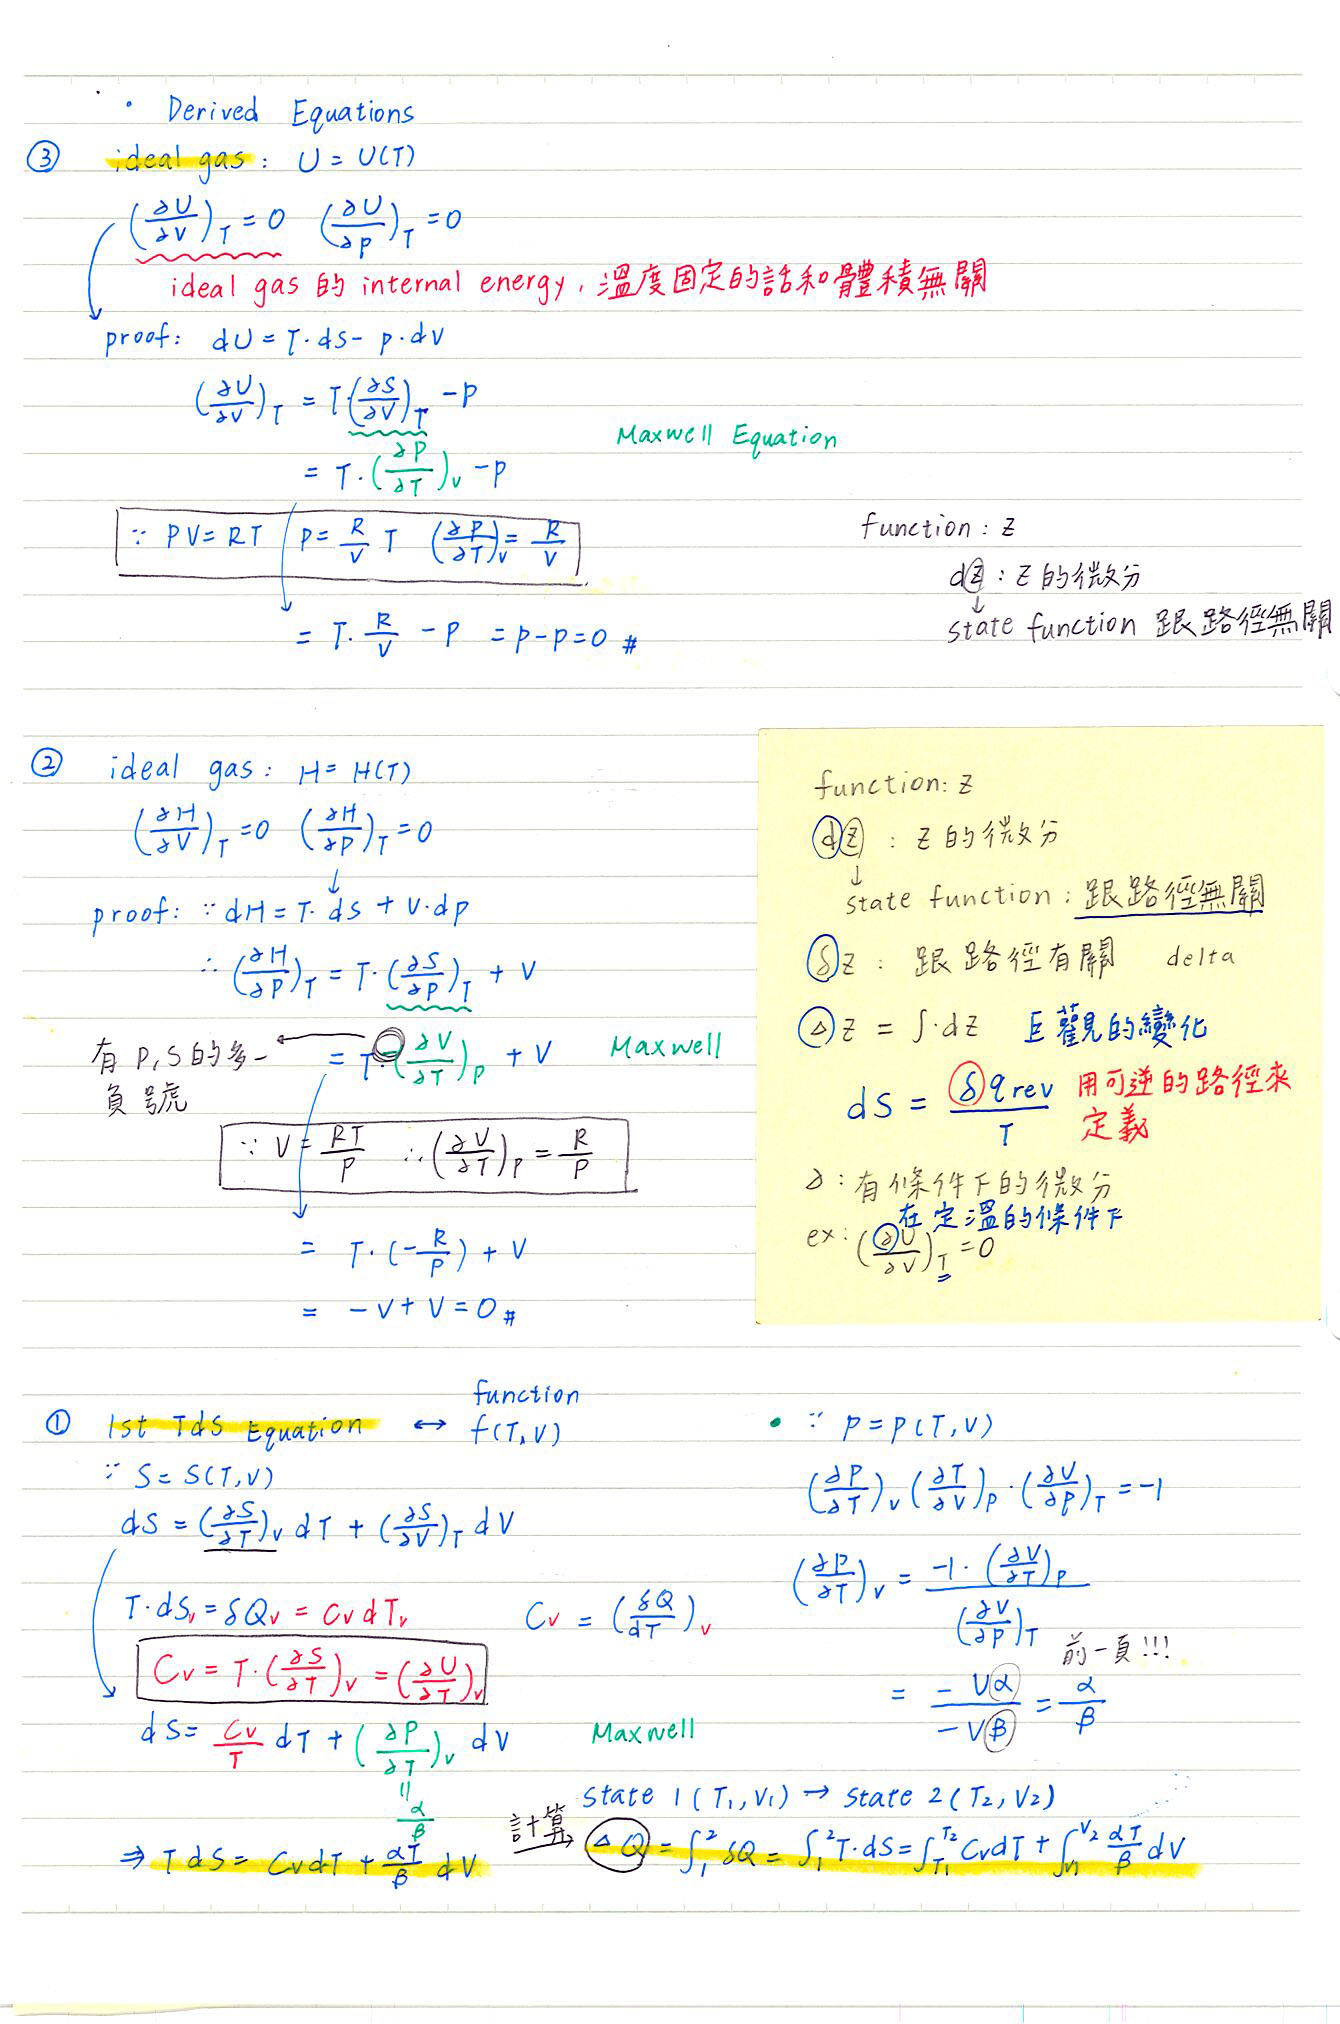 • Derived Equations
③ ideal gas: U = U(T)
(∂U/∂V)_T = 0 (∂U/∂P)_T = 0
ideal gas 的 internal energy, 溫度固定的話和體積無關
proof: dU = T·dS - P·dV
(∂U/∂V)_T = T(∂S/∂V)_T - P
Maxwell Equation
= T·(∂P/∂T)_V - P
∵ PV = RT P = R/V T (∂P/∂T)_V = R/V
= T·R/V - P = P - P = 0 #
function: Z
dZ: Z的微分
↓
state function 跟路徑無關
② ideal gas: H = H(T)
(∂H/∂V)_T = 0 (∂H/∂P)_T = 0
↓
proof: ∵ dH = T·dS + V·dP
∴ (∂H/∂P)_T = T·(∂S/∂P)_T + V
= T·-(∂V/∂T)_P + V Maxwell
有 P,S 的多一
負號
∵ V = RT/P ∴ (∂V/∂T)_P = R/P
= T·(-R/P) + V
= -V + V = 0 #
function: Z
dZ : Z的微分
↓
state function: 跟路徑無關
δZ : 跟路徑有關 delta
△Z = ∫·dZ 巨觀的變化
dS = δq rev/T 用可逆的路徑來
定義
∂: 有條件下的微分
在定溫的條件下
ex: (∂U/∂V)_T = 0
① 1st TdS Equation ↔ function
f(T,V)
∵ S = S(T,V)
dS = (∂S/∂T)_V dT + (∂S/∂V)_T dV
T·dS_V = δQ_V = C_V dT_V C_V = (δQ/dT)_V
C_V = T·(∂S/∂T)_V = (∂U/∂T)_V
dS = C_V/T dT + (∂P/∂T)_V dV Maxwell
=
α/β
⇒ TdS = C_V dT + αT/β dV
• ∵ P = P(T,V)
(∂P/∂T)_V (∂T/∂V)_P · (∂V/∂P)_T = -1
(∂P/∂T)_V = -1·(∂V/∂T)_P / (∂V/∂P)_T
前一頁!!!
= -Vα/-Vβ = α/β
state 1 (T₁,V₁) → state 2 (T₂,V₂)
計算 → △Q = ∫₁² δQ = ∫₁² T·dS = ∫_T₁^T₂ C_V dT + ∫_V₁^V₂ αT/β dV